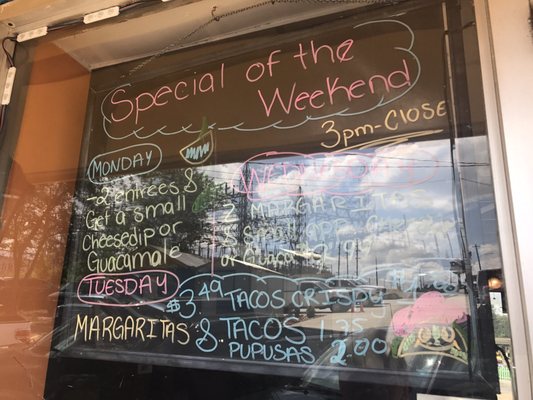 Special of the
Weekend
3pm-Close
MONDAY
-2 entrees &
Get a small
Cheesedip or
Guacamale
WEDNESDAY
2 MARGARITOS
& Small
or Guacamole
TUESDAY
$3.49 TACOS CRISPY
MARGARITAS & TACOS 1.75
PUPUSAS 2.00